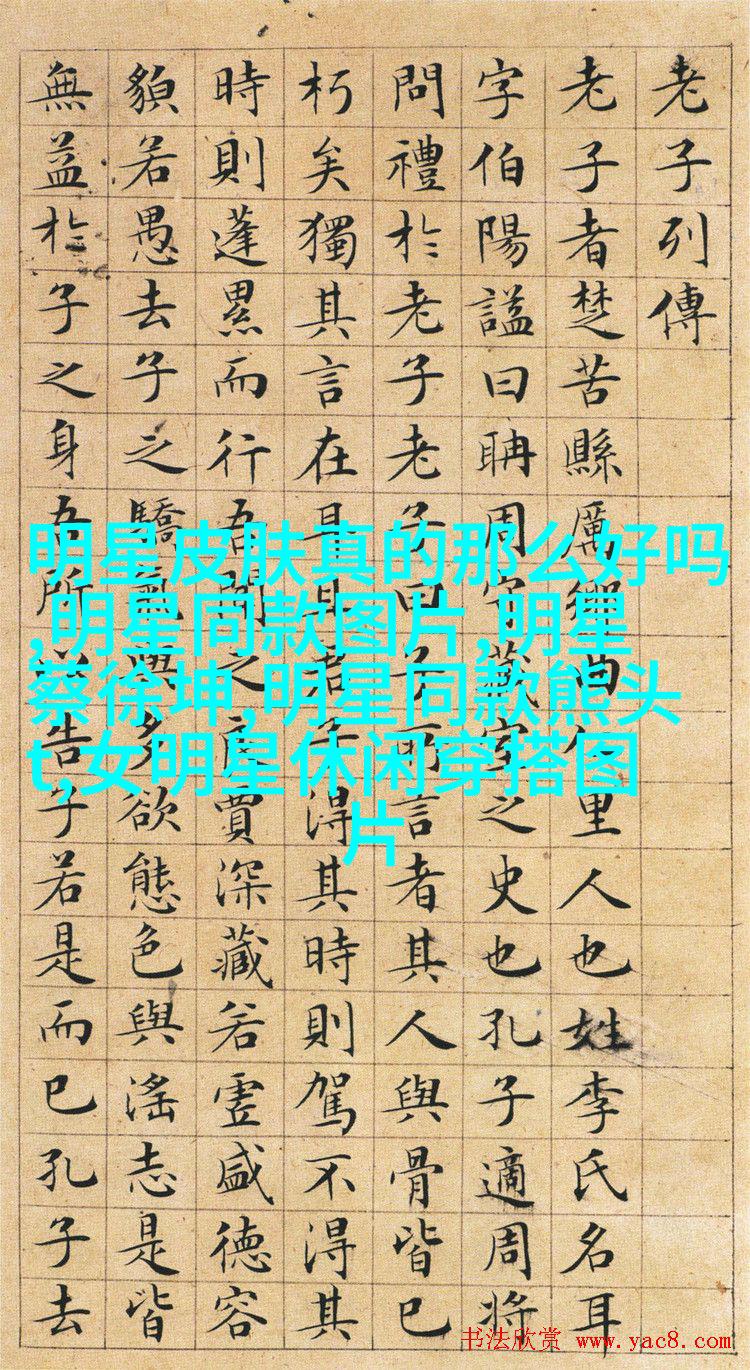 老子列傳
老子者楚苦縣厲鄉曲仁里人也姓李氏名耳
字伯陽諡曰聃周守藏室之史也孔子適周將
問禮於老子老子曰子所言者其人與骨皆已
朽矣獨其言在耳且君子得其時則駕不得其
時則蓬累而行吾聞之良賈深藏若虛盛德容
䫉若愚去子之驕氣與多欲態色與滛志是皆
無益於子之身吾所以告子若是而已孔子去
明星皮肤真的那么好吗
,明星同款图片,明星
蔡徐坤,明星同款熊头
t,女明星休闲穿搭图
片
书法欣赏 www.yac8.com